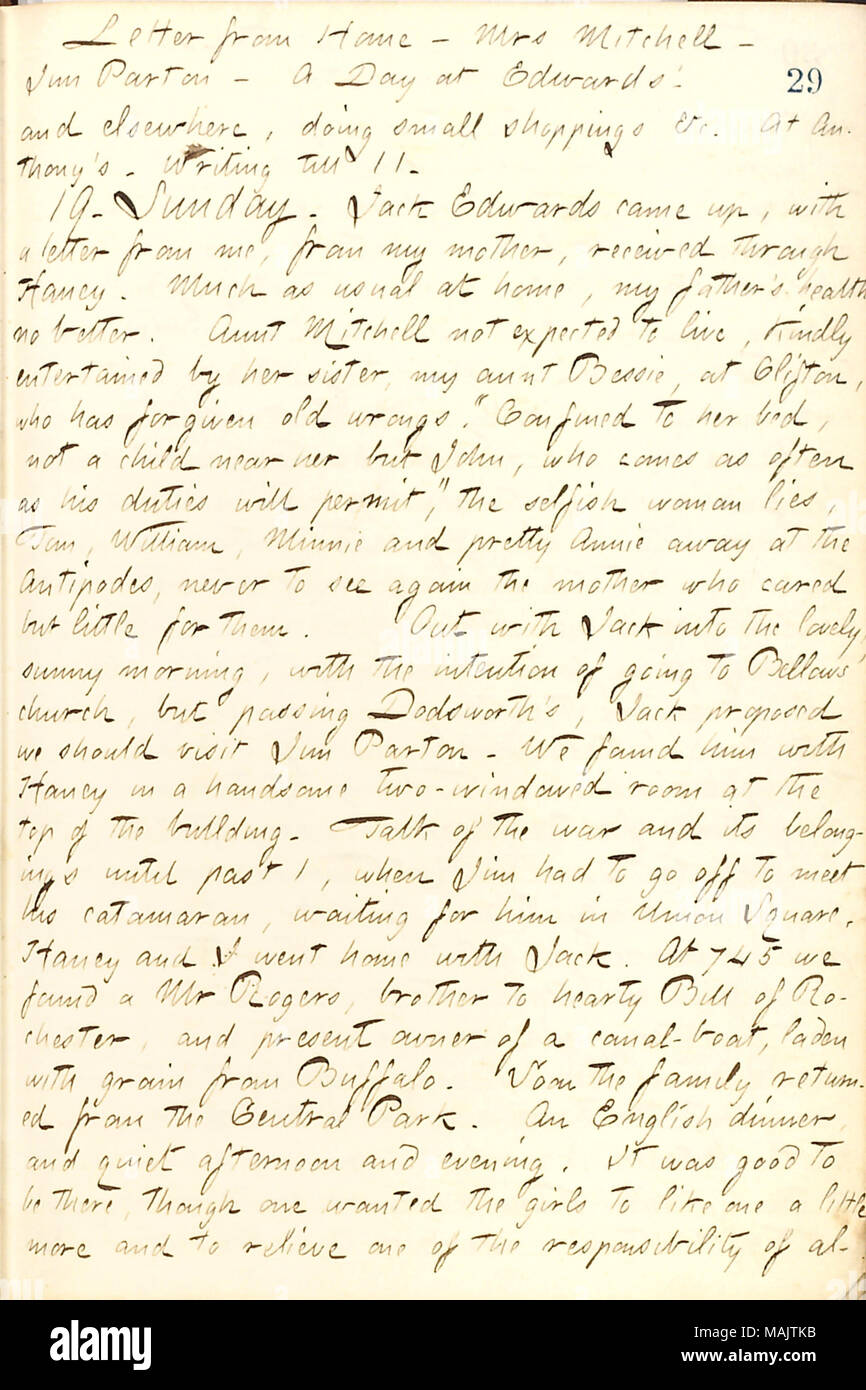 Letter from Home — Mrs Mitchell —
Jim Parton — A Day at Edwards'.
29
and elsewhere, doing small shoppings &c. At An-
thony's. Writing till 11.
19. Sunday. Jack Edwards came up, with
a letter from me, from my mother, received through
Haney. Much as usual at home, my father's health
no better. Aunt Mitchell not expected to live, kindly
entertained by her sister, my aunt Bessie, at Clifton,
who has forgiven old wrongs. "Confined to her bed,
not a child near her but John, who comes as often
as his duties will permit," the selfish woman lies,
Tom, William, Minnie and pretty Annie away at the
Antipodes, never to see again the mother who cared
but little for them. Out with Jack into the lovely,
sunny morning, with the intention of going to Bellows'
church, but passing Dodsworth's, Jack proposed
we should visit Jim Parton. We found him with
Haney in a handsome two-windowed room at the
top of the building. Talk of the war and its belong-
ings until past 1, when Jim had to go off to meet
his catamaran, waiting for him in Union Square.
Haney and I went home with Jack. At 745 we
found a Mr Rogers, brother to hearty Bill of Ro-
chester, and present owner of a canal-boat, laden
with grain from Buffalo. Soon the family return-
ed from the Central Park. An English dinner,
and quiet afternoon and evening. It was good to
be there, though one wanted the girls to like one a little
more and to relieve one of the responsibility of al-
alamy
Image ID: MAJTKB
www.alamy.com